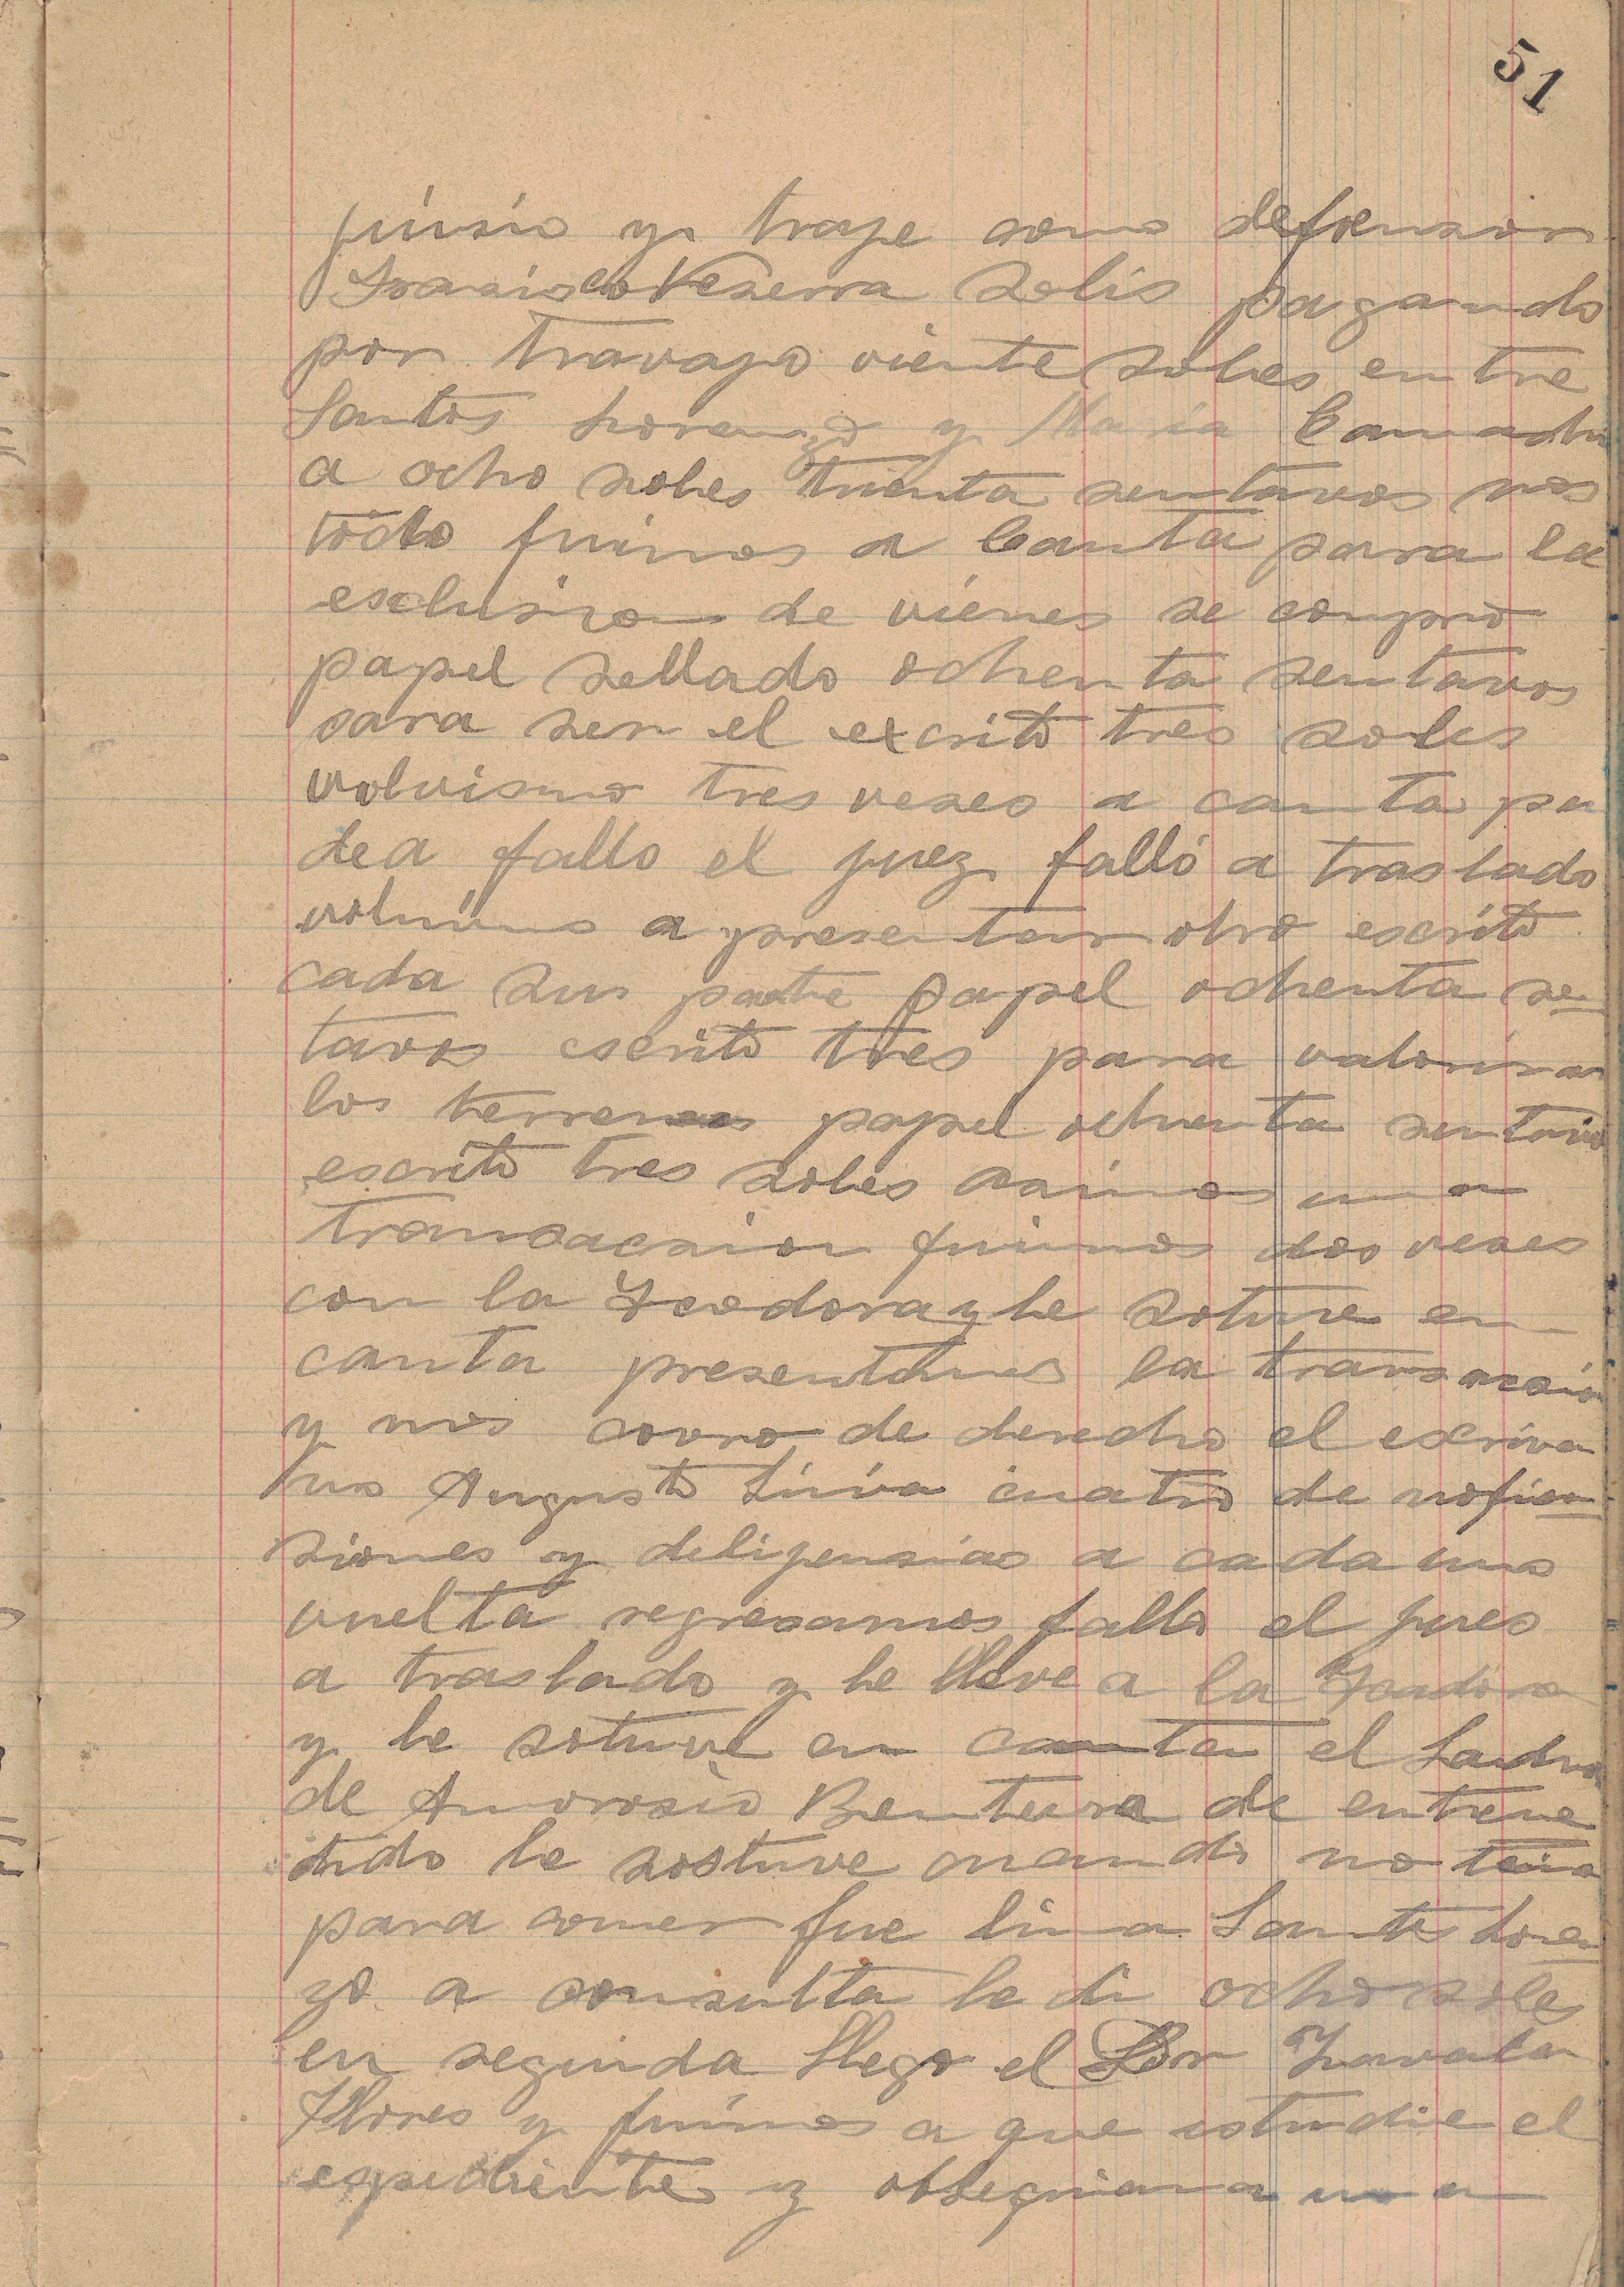 51
juisio y traje como defensor
Fransisco Veserra Solis pagando
por travajo viente soles entre
Santos Lorenzo y Maria Camacho
a ocho soles trienta sentavos nos
todo fuimos a Canta para la
esclusion de vienes se compró
papel sellado ochenta sentavos
para ser el excrito tres soles
volvismo tres veses a canta pa
dea fallo el juez falló a traslado
volvimo a presentar otro escrito
cada sus parte papel ochenta sen
tavos escrito tres para valorisar
los terrenos papel ochenta sentavo
escrito tres soles una
transacsion fuimos dos veses
con la Teodora y le sotuve en
canta presentamos la transacsion
y nos covro de derecho el escriva
no Augusto cuatro de nofica
siones y delijensias a cada uno
vuelta regresamos fallo el jues
a traslado y le lleve a la Teodora
y le sotuve en canta el
de Amorosio Bentura de entene
dido le sostuve cuando no tenia
para comer fue lima Santos Loren
zo a consulta le di ocho soles
en seguida llego el Dor Zavala
Flores y fuimos a que estudie el
espediente y obsequiar una